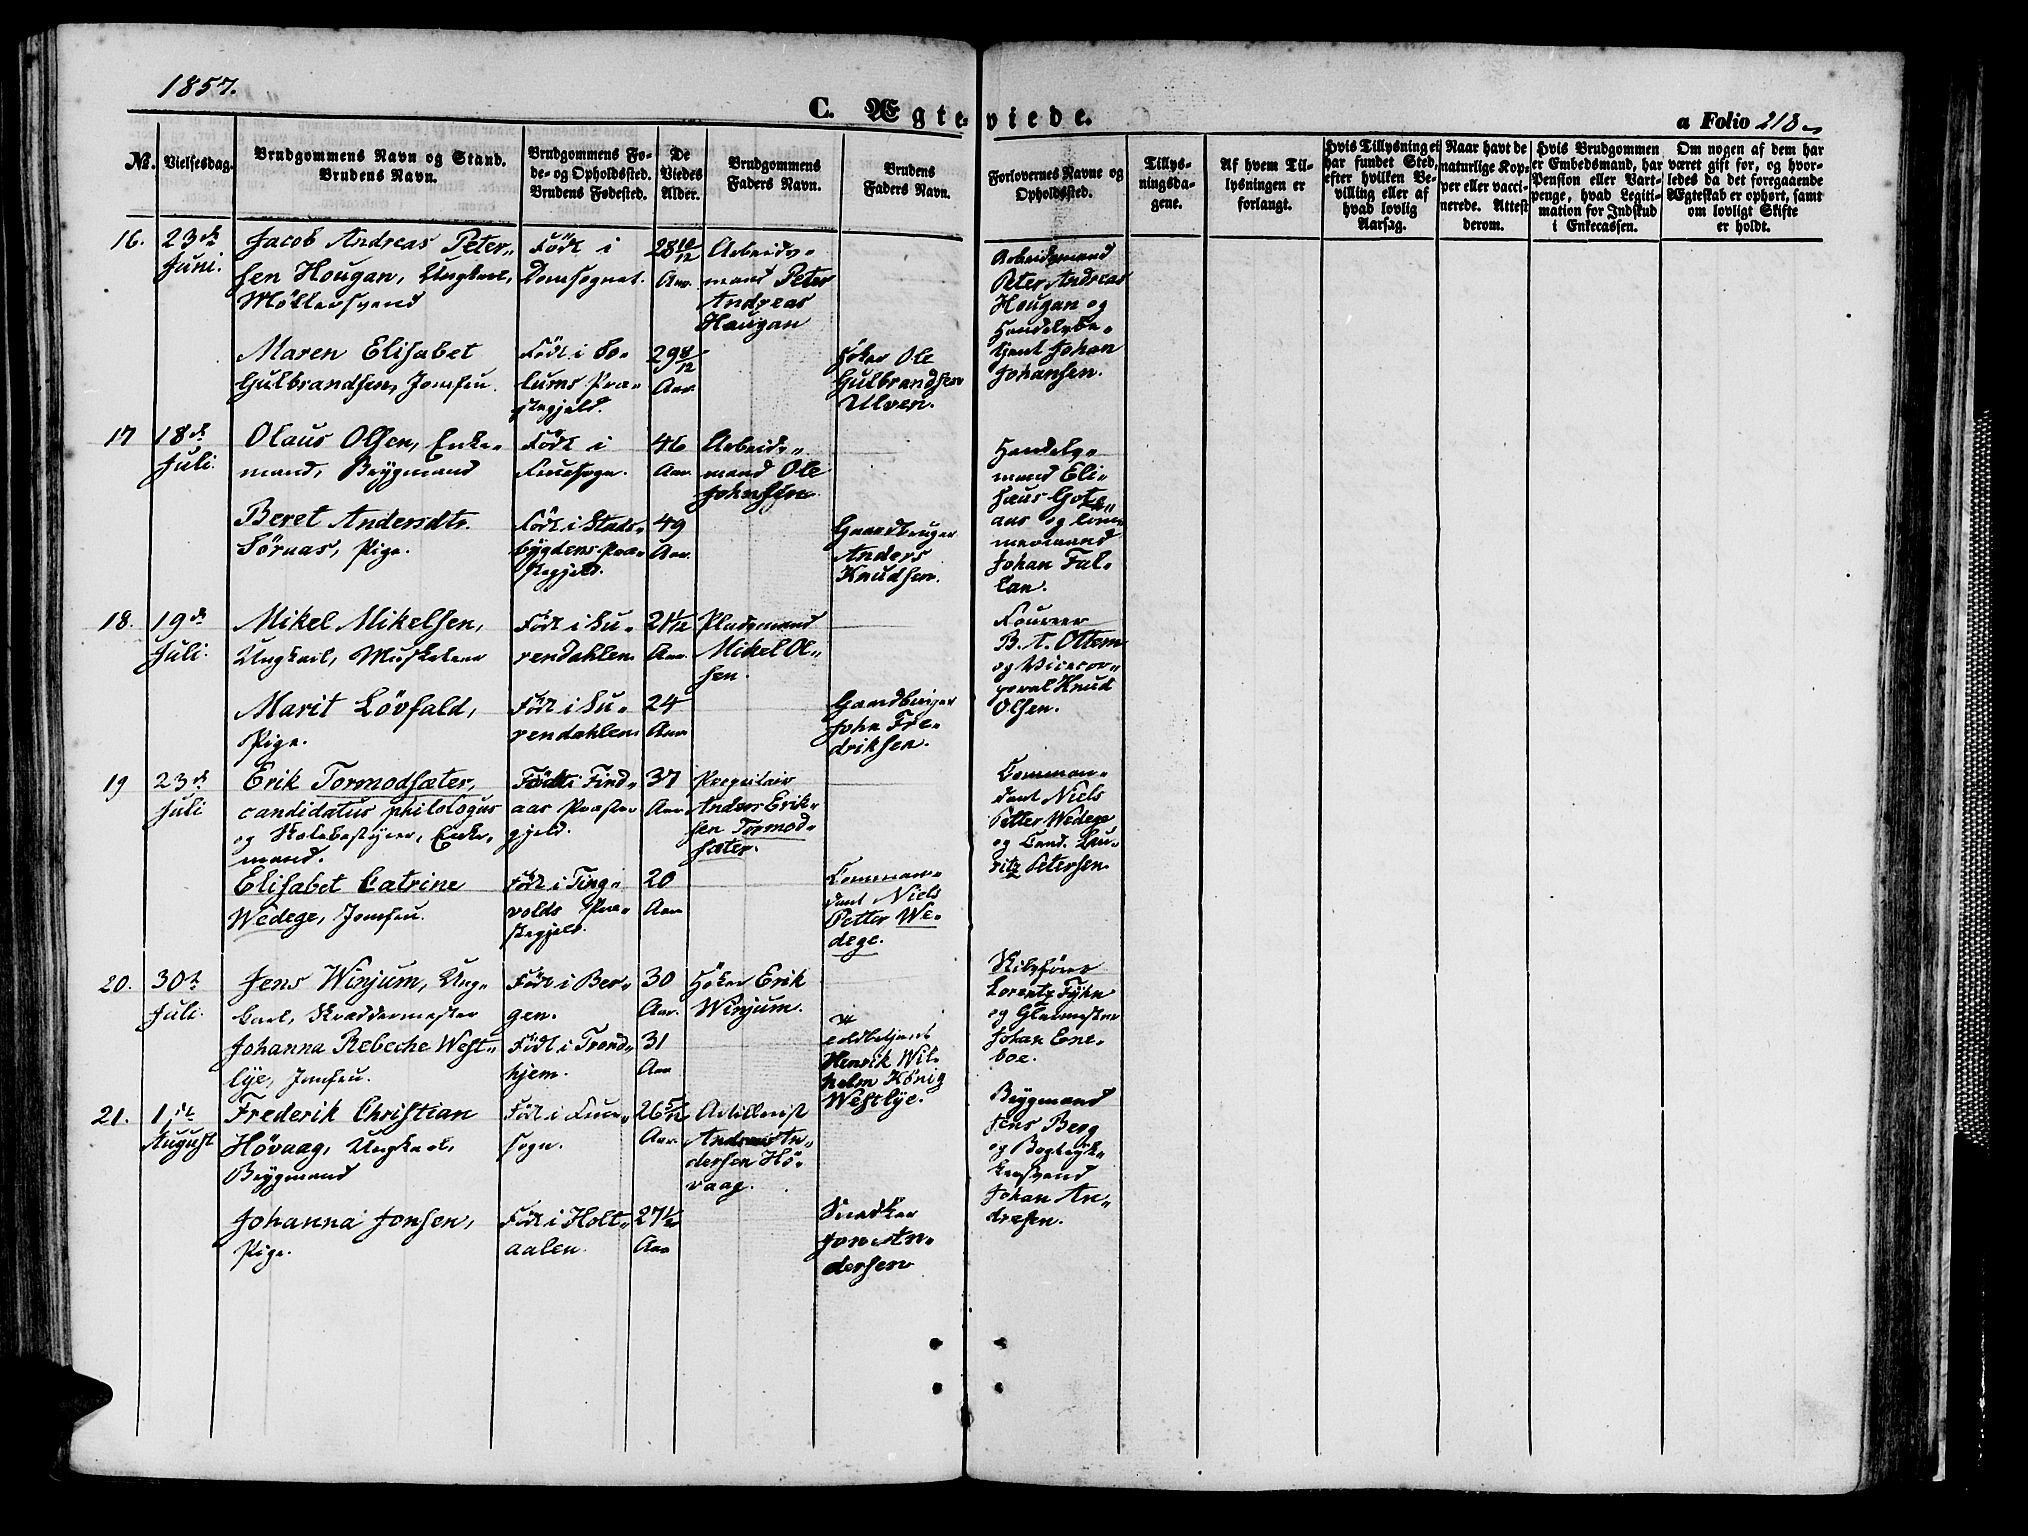 1857.
C. Ægteviede.
a Folio 218
No. Vielsesdag. Brudgommens Navn og Stand. Brudens Navn. Brudgommens Føde- og Opholdssted. Brudens Fødested. De Viedes Alder. Brudgommens Faders Navn. Brudens Faders Navn. Forlovernes Navne og Opholdssted. Tillysningsdagene. Af hvem Tillysningen er forlangt. Hvis Tillysning ei har fundet Sted, efter hvilken Bevilling eller af hvad lovlig Aarsag. Naar havt de naturlige Kopper eller vaccinerede. Attest derom. Hvis Brudgommen er Embedsmand, har Pension eller Vartpenge, hvad Legitimation for Indskud i Enkecassen. Om nogen af dem har været gift før, og hvorledes da det foregaaende Ægteskab er ophørt, samt om lovligt Skifte er holdt.
16. 23de Juni.
Jacob Andreas Peter-
sen Hougan, Ungkarl,
Möllersvend
Födt i
Domsognet.
28 10/12
Aar.
Arbeids-
mand Peter
Andreas
Hougan
Arbeidsmand
Peter Andreas
Hougan og
Handelsbe-
tjent Johan
Johansen.
Maren Elisabet
Gulbrandsen, Jomfru.
Födt i So-
lums Præ-
stegjeld.
29 8/12
Aar.
Höker Ole
Gulbrandsen
Ulven.
17 18de Juli.
Olaus Olsen, Enke-
mand, Brygmand
Födt i
Fruesogn.
46
Aar.
Arbeids-
mand Ole
Johnsen.
Handels-
mand Eli-
sæus Gota-
as og
Johan Fal-
lan.
Beret Andersdtr.
Sörnas, Pige.
Födt i Stads-
bygdens Præ-
stegjeld.
49
Aar.
Gaardbruger
Anders
Knudsen.
18. 19de Juli.
Mikel Mikelsen,
Ungkarl, Musketeer
Födt i Su-
rendahlen
21 1/12
Aar.
Pladsmand
Mikel Ol-
sen.
Foureer
B. A. Ottem
og Vicecor-
poral Knud
Olsen.
Marit Lövfald,
Pige.
Födt i Su-
rendahlen
24
Aar.
Gaardbruger
John Fre-
driksen.
19 23de Juli
Erik Tormodsæter,
candidatus philologus
og Skolebestyrer, Enke-
mand.
Födt i Find-
aas Præste-
gjeld.
37
Aar.
Anders Erik-
sen Tormod-
sæter.
Comman-
dant Niels
Petter Wedege
og Cand. Lau-
ritz Petersen.
Elisabet Catrine
Wedege, Jomfru.
Födt i Ting-
volds Præ-
stegjeld.
20
Aar
Comman-
dant Niels
Petter We-
dege.
20. 30te Juli.
Jens Winjum, Ung-
karl, Skræddermester
Födt i Ber-
gen.
30
Aar.
Höker Erik
Winjum.
Skibsförer
Lorentz Fyhn
og Glarmester
Johan Ene-
boe.
Johanna Rebecke West-
lye, Jomfru.
Födt i Trond-
hjem.
31
Aar
Toldbetjent
Henrik Wil-
helm König
Westlye.
21. 1ste August
Frederik Christian
Hövaag, Ungkarl,
Brygmand
Födt i Frue-
sogn.
26 5/12
Aar.
Artillerist
Andreas An-
dersen Hö-
vaag.
Brygmand
Jens Berg
og Bogtryk-
kersvend
Johan An-
dresen.
Johanna Jonsen,
Pige.
Födt i Holt-
aalen.
27 1/2
Aar
Snedker
Jon An-
dersen